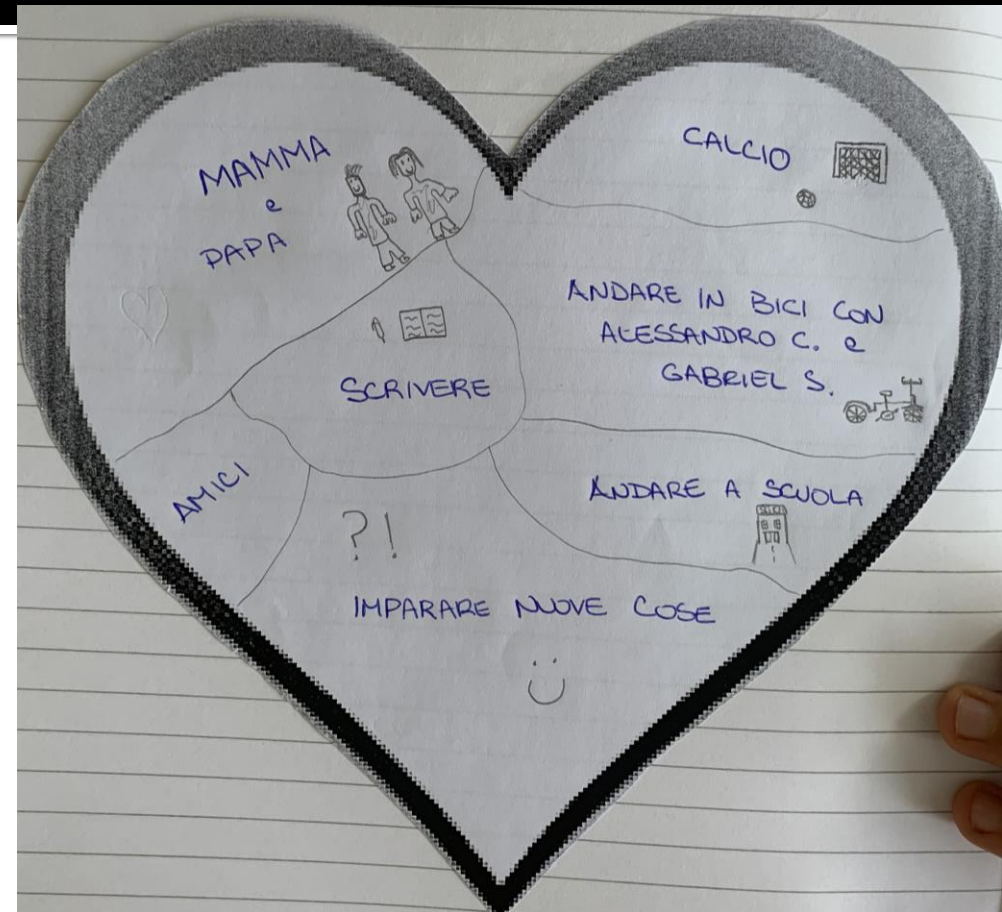 MAMMA
e
PAPA
CALCIO
ANDARE IN BICI CON
ALESSANDRO C. e
GABRIEL S.
SCRIVERE
AMICI
ANDARE A SCUOLA
?!
IMPARARE NUOVE COSE